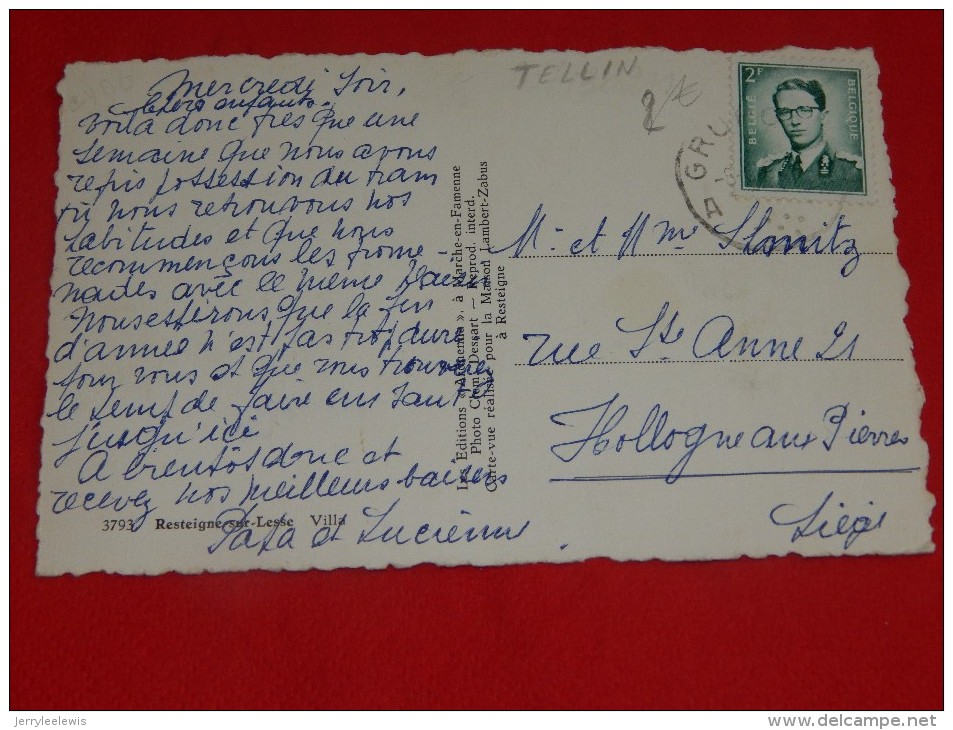 Mercredi Soir,
chers enfants
Voilà donc près que une
semaine que nous avons
repris possession du tram
où nous retrouvons nos
habitudes et que nous
recommençons les prome-
nades avec le même
Nous espérons que la fin
d'année n'est pas trop dure
pour vous et que vous trouvez
le temps de faire
jusqu'ici
A bientôt donc et
recevez nos meilleurs baisers
Papa et Lucienne
3793 Resteigne-sur-Lesse Villa
Les Editions « Arduenna », à Marche-en-Famenne
Photo Clem. Dessart — Reprod. interd.
Carte-vue réalisée pour la Maison Lambert-Zabus
à Resteigne
TELLIN
2€
2F
BELGIË
BELGIQUE
A GRU
M. et Mme
rue Ste Anne 21
Hollogne aux Pierres
Liège
jerryleelewis
www.delcampe.net